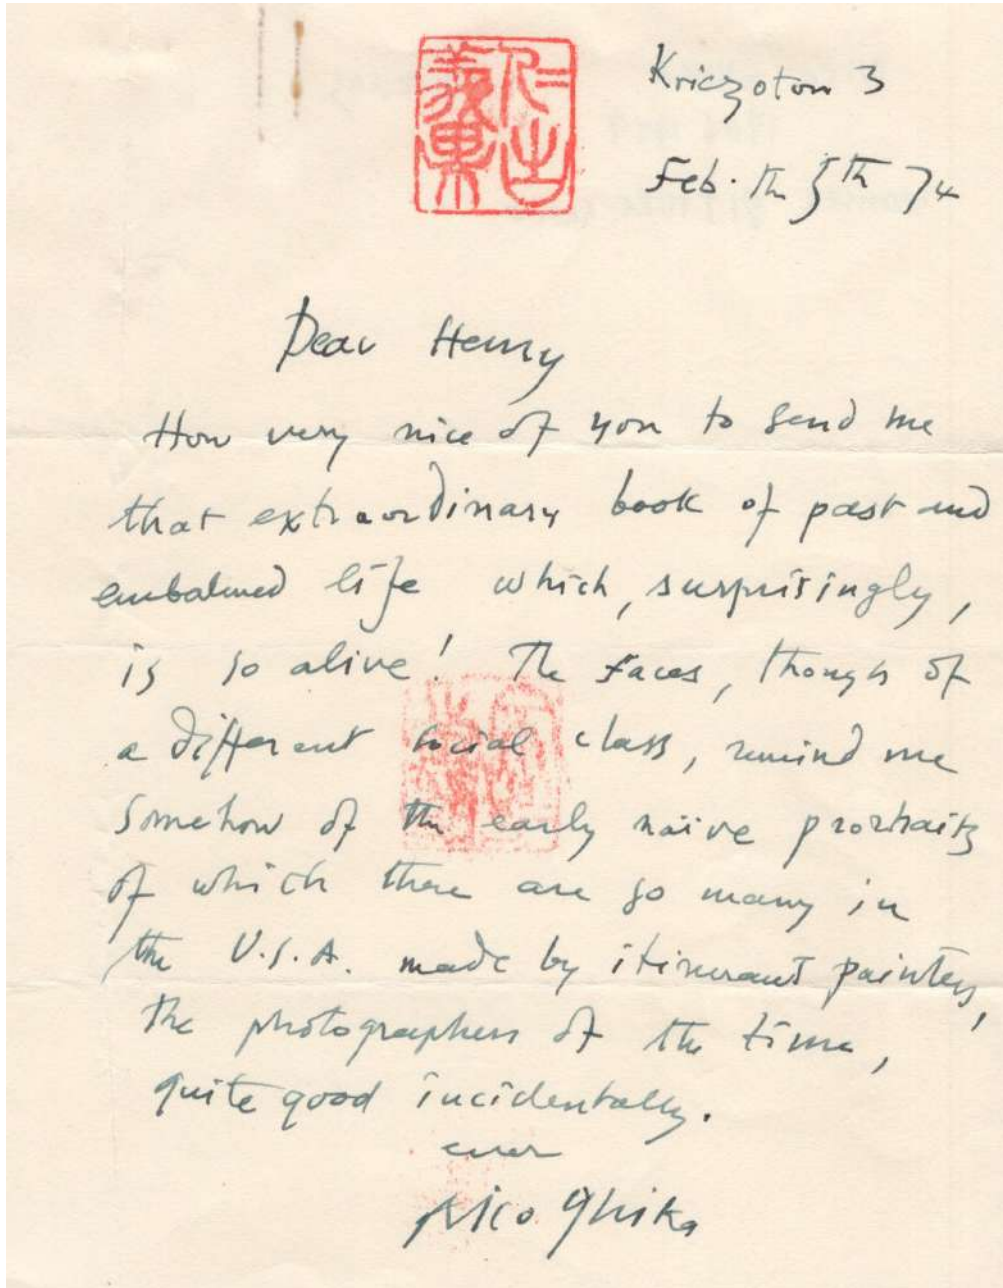 Kriezotou 3
Feb. th 5th 74
Dear Henry
How very nice of you to send me
that extraordinary book of past and
embalmed life which, surprisingly,
is so alive! The faces, though of
a different social class, remind me
somehow of the early naïve prortraits
of which there are so many in
the U.S.A. made by itinerant painters,
the photographers of the time,
quite good incidentally.
ever
Nico Ghika